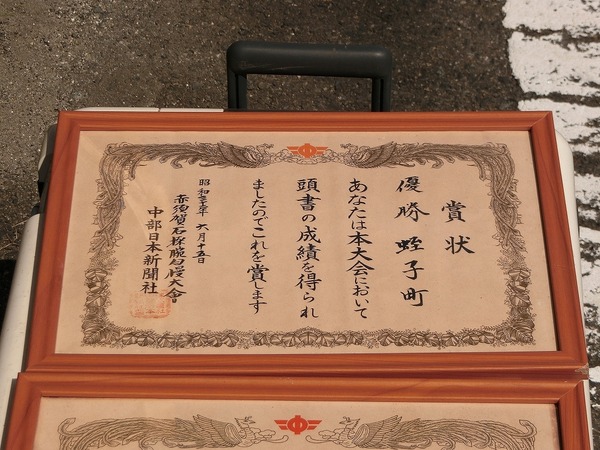 賞状
優勝 蛭子町
あなたは本大会において
頭書の成績を得られ
ましたのでこれを賞します
昭和 年 六月十五日
赤須賀石採腕自慢大會
中部日本新聞社